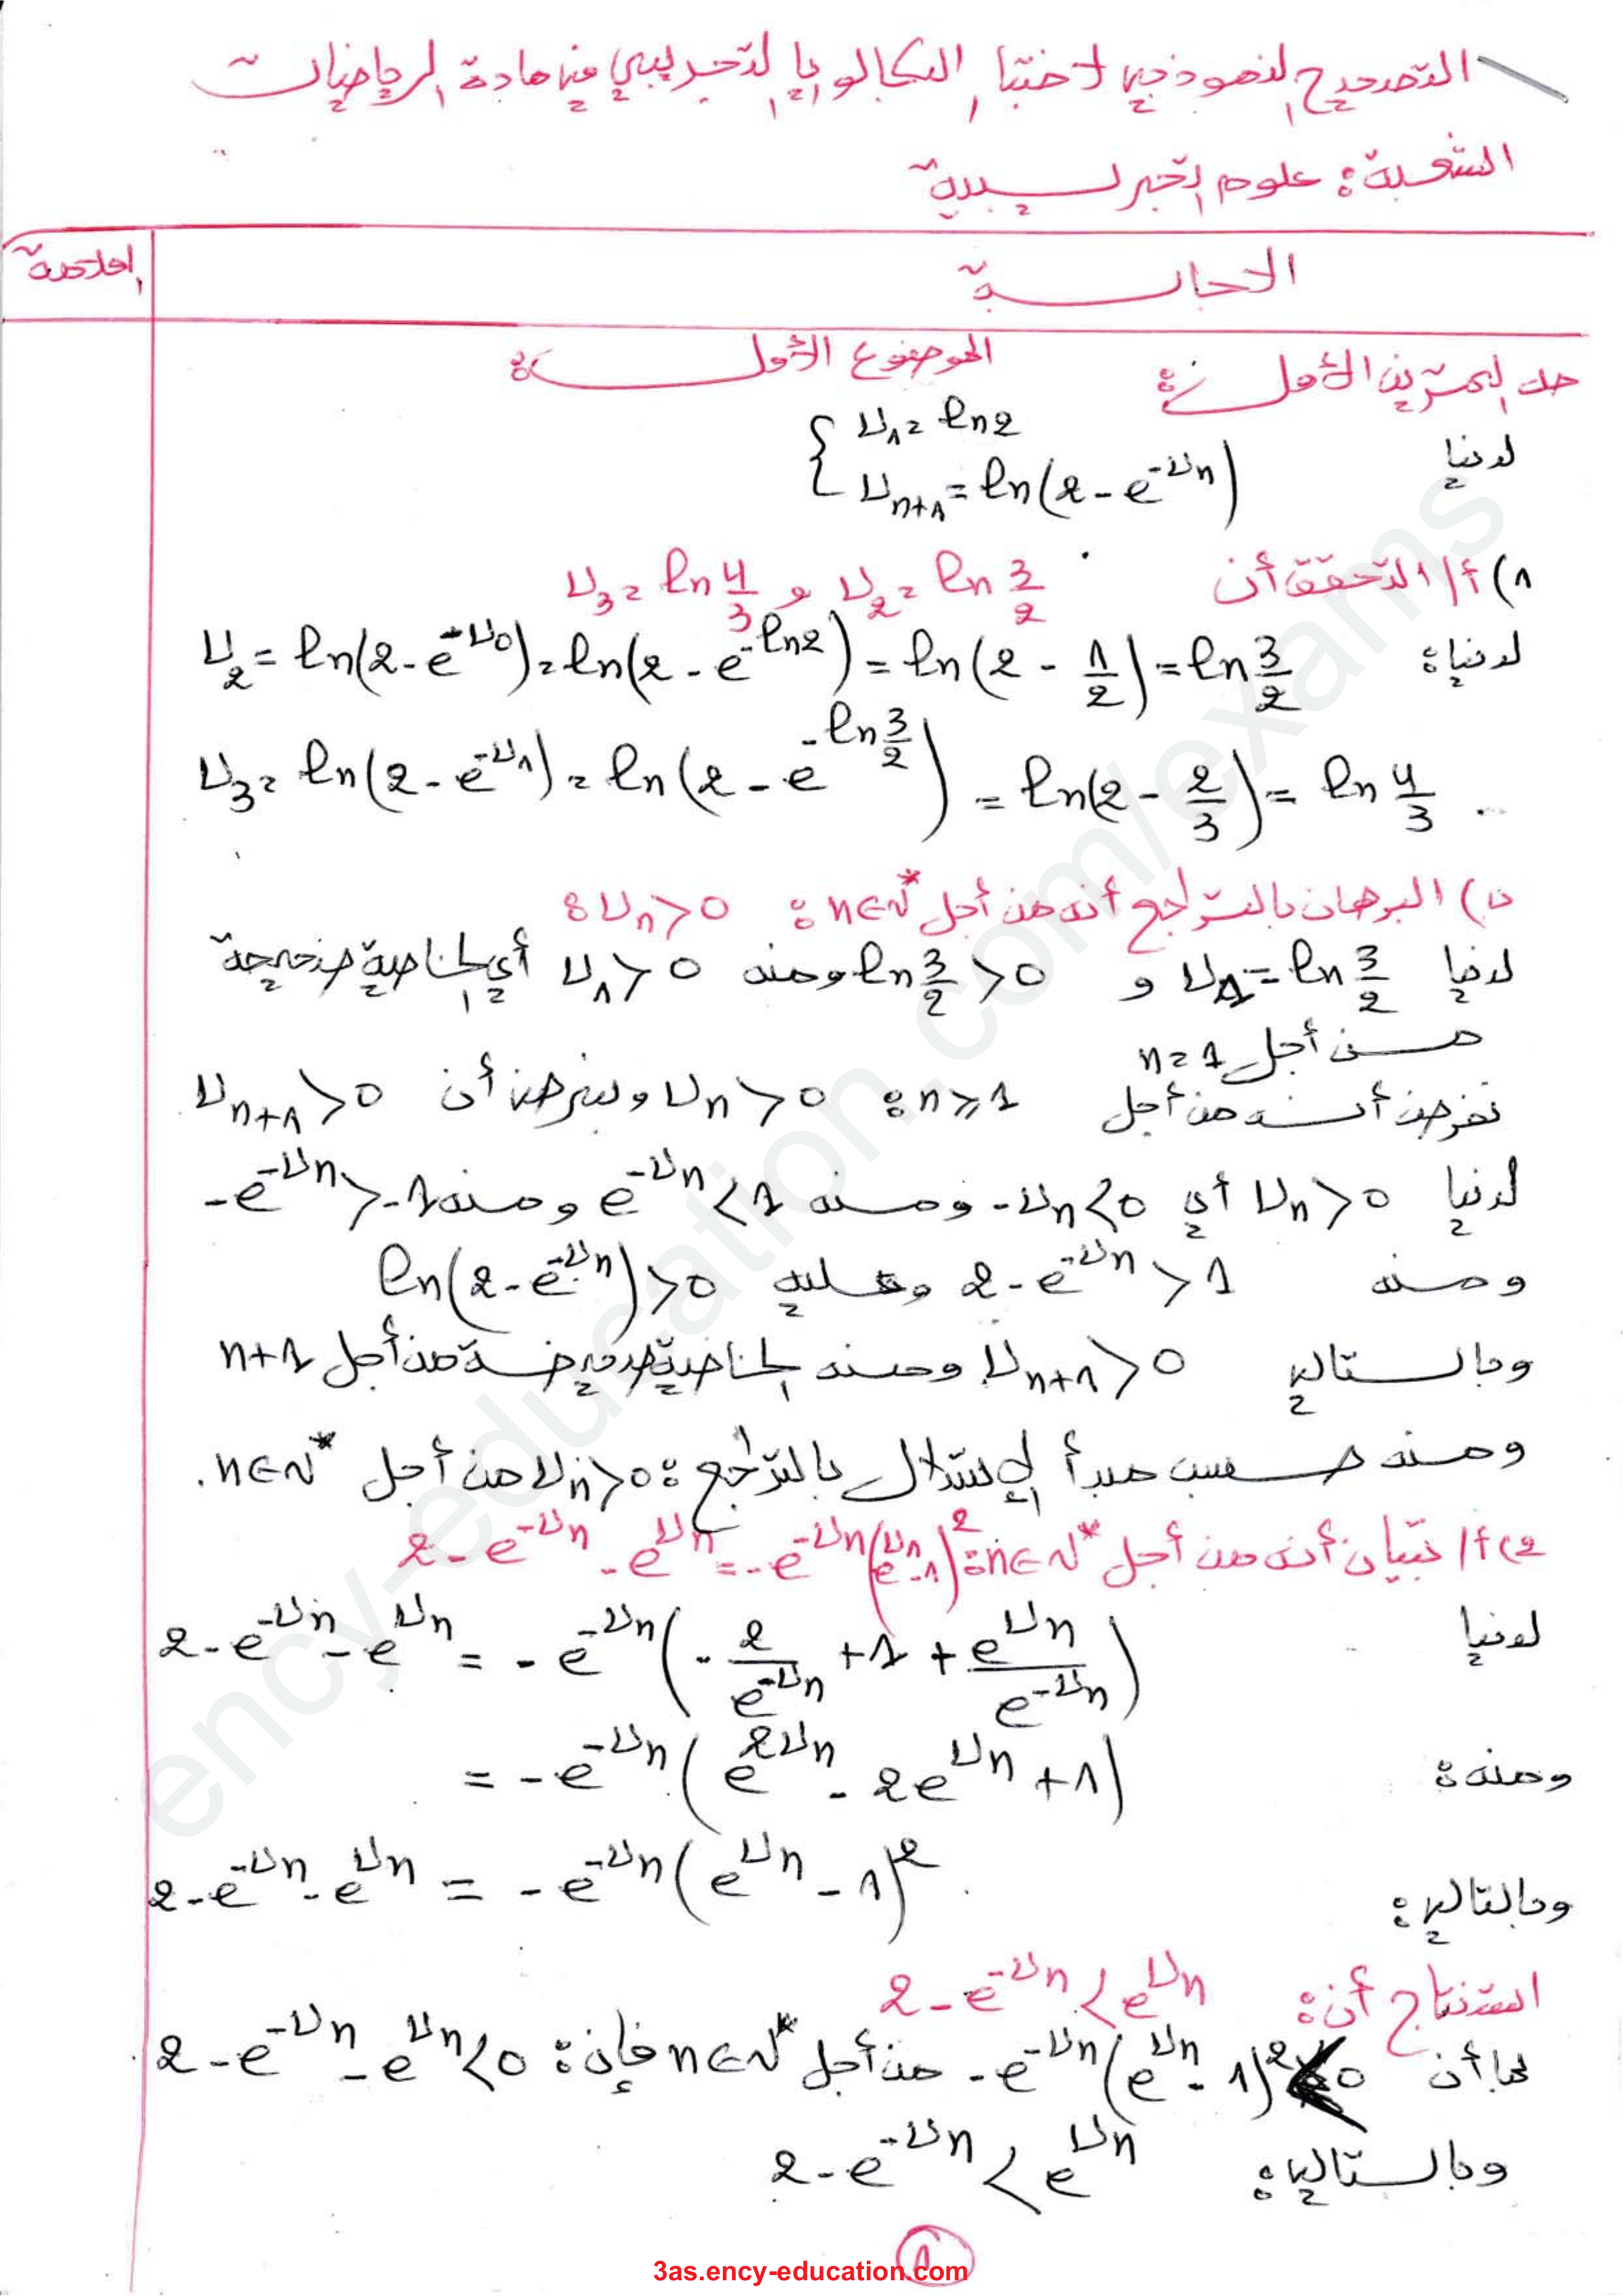 التصحيح النموذجي لاختبار البكالوريا التجريبي في مادة الرياضيات
الشعبة: علوم تجريبية
الاجابة
الملاحظة
الموضوع الأول:
حل التمرين الأول:
لدينا { U₁ = ln2
U_{n+1} = ln(2 - e^{-U_n})
1) أ/ التحقق أن U₂ = ln 3/2 و U₃ = ln 4/3
لدينا: U₂ = ln(2 - e^{-U₀}) = ln(2 - e^{-ln2}) = ln(2 - 1/2) = ln 3/2
U₃ = ln(2 - e^{-U₁}) = ln(2 - e^{-ln 3/2}) = ln(2 - 2/3) = ln 4/3 .
ب) البرهان بالتراجع أنه من أجل n∈ℕ* : U_n > 0 :
لدينا U₁ = ln 3/2 و ln 3/2 > 0 ومنه U₁ > 0 أي الخاصية صحيحة
من أجل n = 1
نفرض أنه من أجل n ≥ 1 : U_n > 0 ونبرهن أن U_{n+1} > 0
لدينا U_n > 0 أي -U_n < 0 ومنه e^{-U_n} < 1 ومنه -e^{-U_n} > -1
ومنه 2 - e^{-U_n} > 1 وعليه ln(2 - e^{-U_n}) > 0
وبالتالي U_{n+1} > 0 ومنه الخاصية صحيحة من أجل n+1
ومنه حسب مبدأ الاستدلال بالتراجع : U_n > 0 من أجل n∈ℕ* .
2) أ/ تبيان أنه من أجل n∈ℕ* : 2 - e^{-U_n} - e^{U_n} = -e^{-U_n}(e^{U_n} - 1)²
لدينا 2 - e^{-U_n} - e^{U_n} = -e^{-U_n}(-2/e^{-U_n} + 1 + e^{U_n}/e^{-U_n})
ومنه : = -e^{-U_n}(e^{2U_n} - 2e^{U_n} + 1)
وبالتالي : 2 - e^{-U_n} - e^{U_n} = -e^{-U_n}(e^{U_n} - 1)²
استنتاج أن : 2 - e^{-U_n} < e^{U_n}
بما أن -e^{-U_n}(e^{U_n} - 1)² < 0 من أجل n∈ℕ* فإن : 2 - e^{-U_n} - e^{U_n} < 0
وبالتالي : 2 - e^{-U_n} < e^{U_n}
1
3as.ency-education.com
ency-education.com/exams